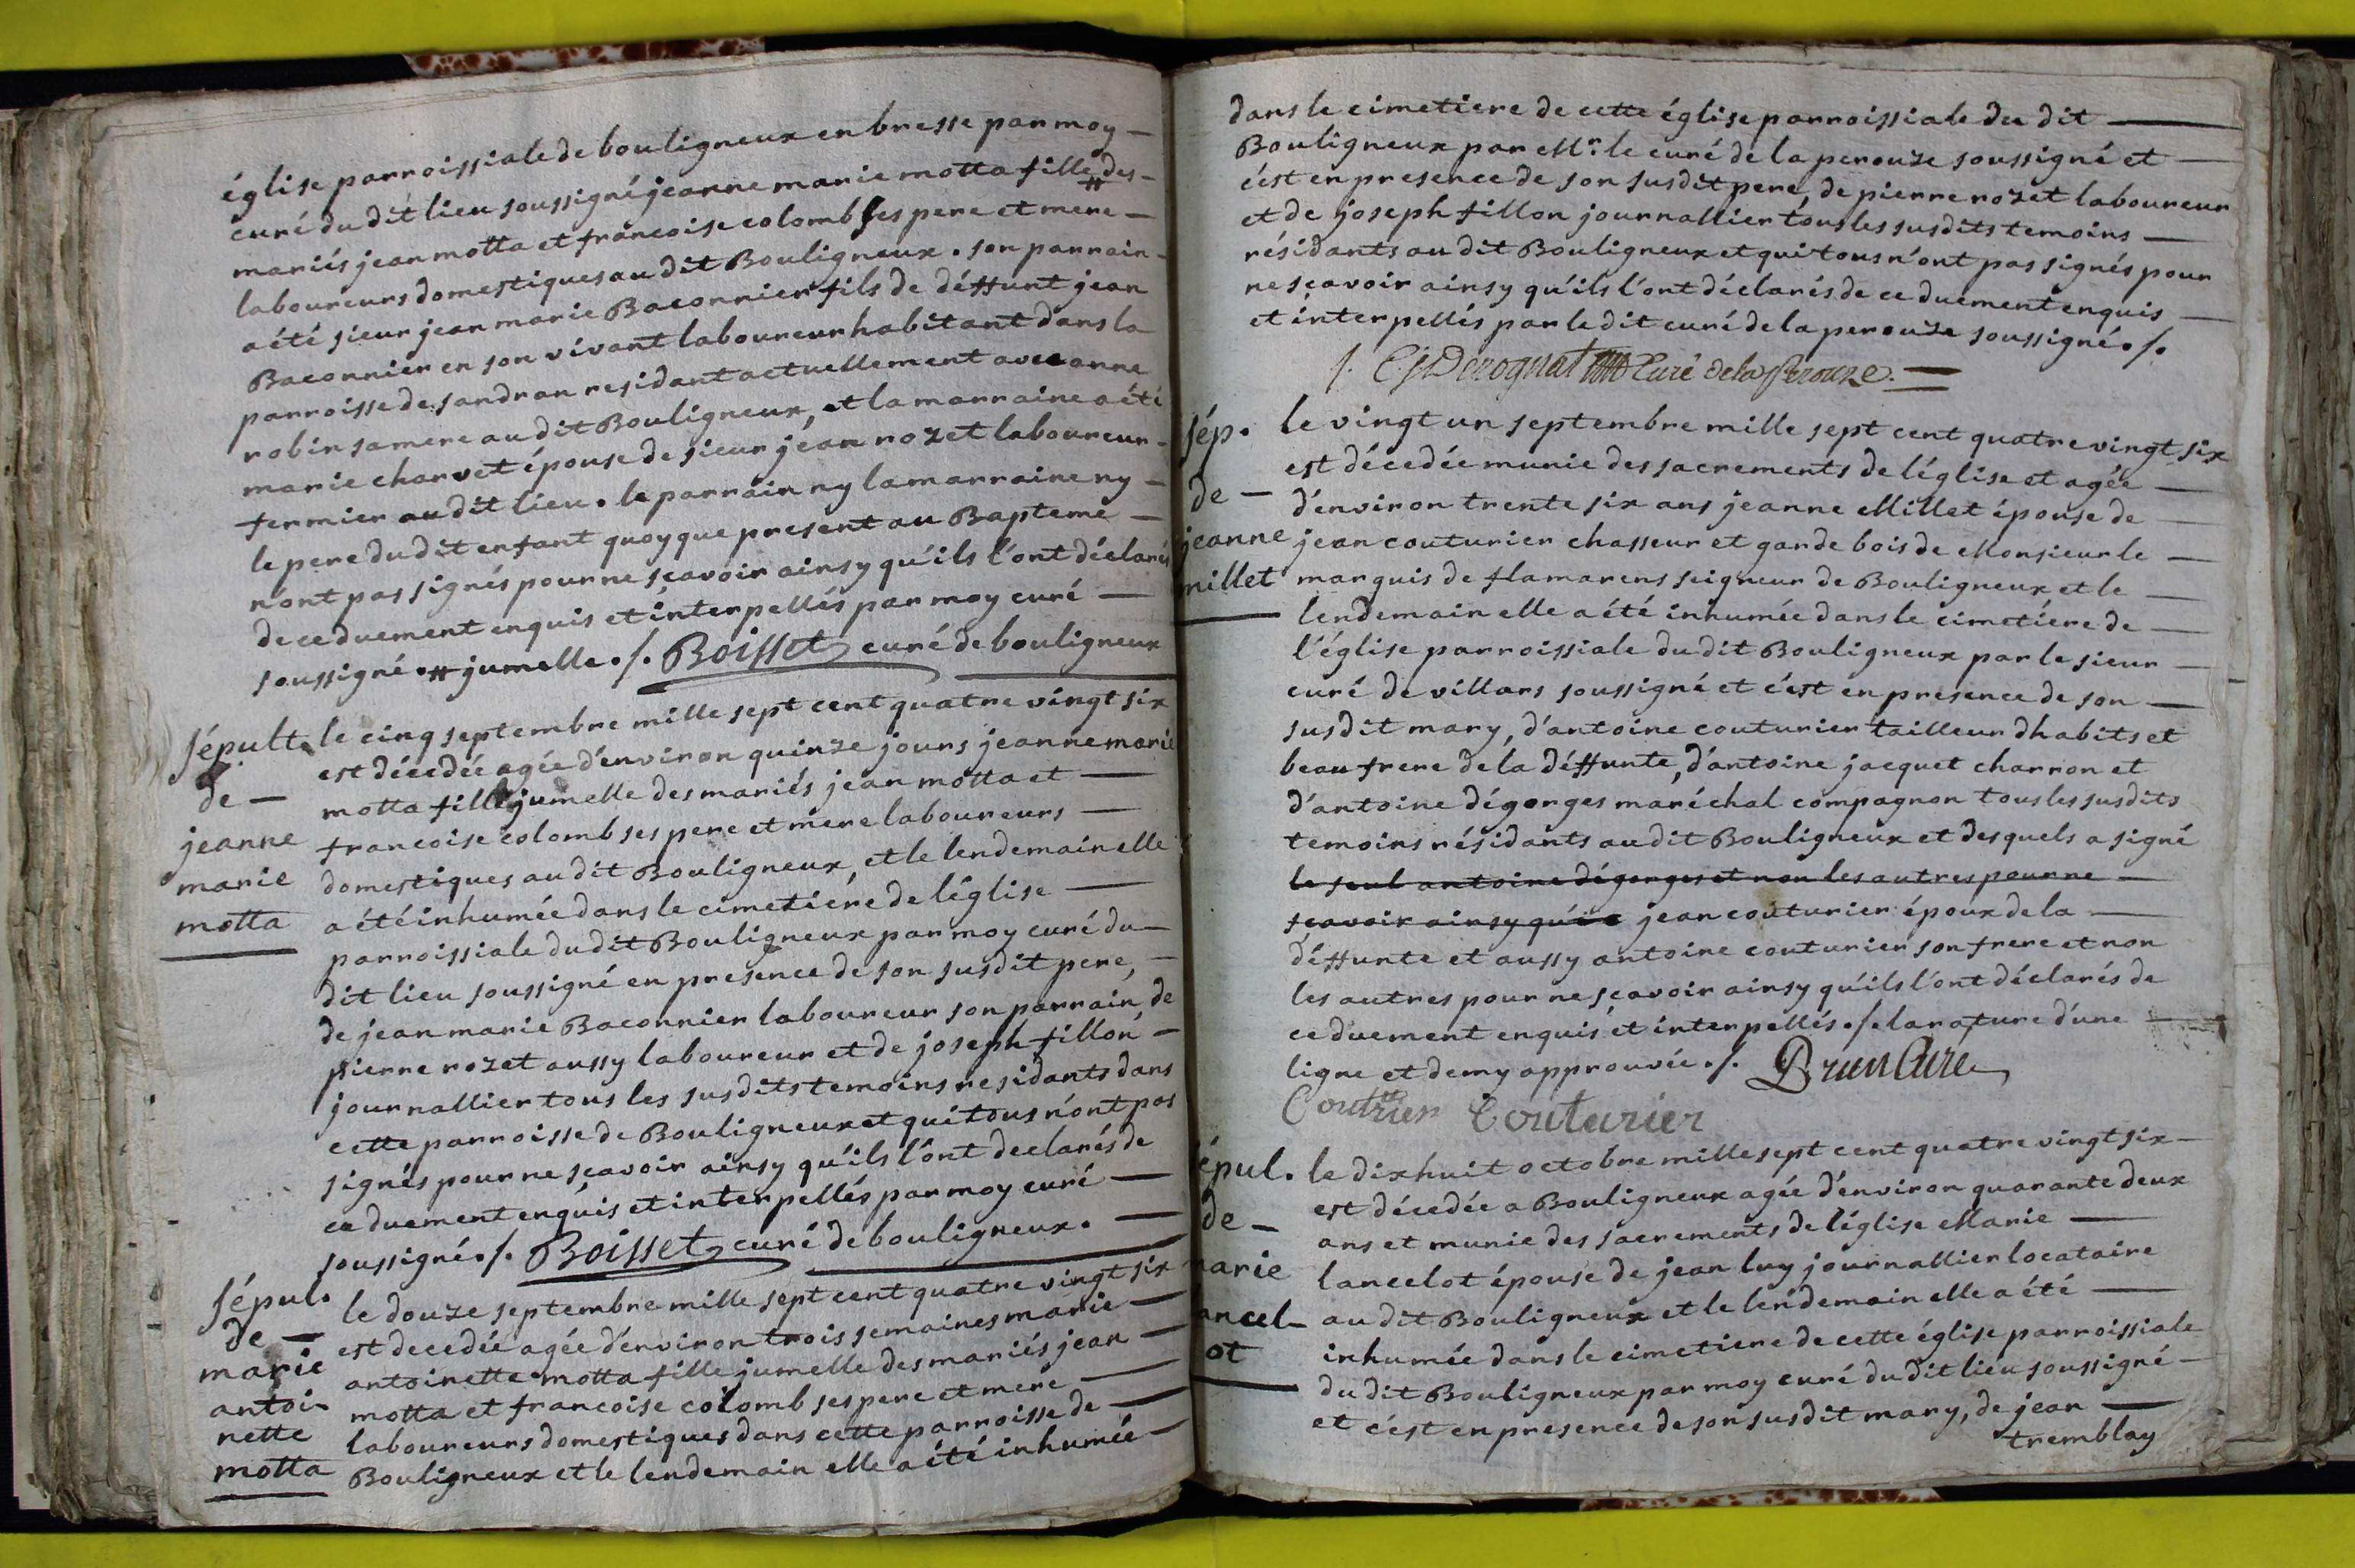 église parroissiale de bouligneux en bresse par moy —
curé du dit lieu soussigné jeanne marie motta fille # des —
mariés jean motta et francoise colomb ses pere et mere —
laboureurs domestiques au dit Bouligneux. son parrain —
a été sieur jean marie Baconnier fils de déffunt jean
Baconnier en son vivant laboureur habitant dans la
parroisse de sandran residant actuellement avec anne
robin sa mere au dit Bouligneux, et la marraine a été
marie charvet épouse de sieur jean rozet laboureur —
fermier au dit lieu. le parrain ny la marraine ny —
le pere du dit enfant quoyque present au Bapteme —
n'ont pas signés pour ne sçavoir ainsy qu'ils l'ont déclarés
de ce duement enquis et interpellés par moy curé —
soussigné. # jumelle ./. Boisset curé de bouligneux
sépult. le cinq septembre mille sept cent quatre vingt six
est décedée agée d'environ quinze jours jeanne marie
de — motta fille jumelle des mariés jean motta et —
jeanne francoise colomb ses pere et mere laboureurs —
marie domestiques au dit Bouligneux, et le lendemain elle
motta a été inhumée dans le cimetiére de l'église —
parroissiale du dit Bouligneux par moy curé du —
dit lieu soussigné en presence de son susdit pere, —
de jean marie Baconnier laboureur son parrain, de
pierre rozet aussy laboureur et de joseph fillon —
journallier tous les susdits temoins residants dans
cette parroisse de Bouligneux et qui tous n'ont pas
signés pour ne sçavoir ainsy qu'ils l'ont declarés de
ce duement enquis et interpellés par moy curé —
soussigné ./. Boisset curé de bouligneux. —
sépul. le douze septembre mille sept cent quatre vingt six
de — est decedée agée d'environ trois semaines marie —
marie antoinette motta fille jumelle des mariés jean —
antoi- motta et francoise colomb ses pere et mere —
nette laboureurs domestiques dans cette parroisse de —
motta Bouligneux et le lendemain elle a été inhumée —
dans le cimetiere de cette église parroissiale du dit —
Bouligneux par Mr. le curé de la perouze soussigné et —
c'est en presence de son susdit pere, de pierre rozet laboureur
et de joseph fillon journallier tous les susdits temoins —
résidants au dit Bouligneux et qui tous n'ont pas signés pour
ne sçavoir ainsy qu'ils l'ont déclarés de ce duement enquis —
et interpellés par le dit curé de la perouze soussigné ./.
Derognat Curé de la Perouze. —
sép. le vingt un septembre mille sept cent quatre vingt six
est décedée munie des sacrements de l'église et agée —
de — d'environ trente six ans jeanne Millet épouse de —
jeanne jean couturier chasseur et garde bois de Monsieur le —
millet marquis de flamarens seigneur de Bouligneux et le —
lendemain elle a été inhumée dans le cimetiére de —
l'église parroissiale du dit Bouligneux par le sieur —
curé de villars soussigné et c'est en presence de son —
susdit mary, d'antoine couturier tailleur dhabits et
beau frere de la déffunte, d'antoine jacquet charron et
d'antoine dégorges maréchal compagnon tous les susdits
temoins résidants au dit Bouligneux et desquels a signé
le seul antoine dégorges et non les autres pour ne —
sçavoir ainsy qu'ils jean couturier époux de la —
déffunte et aussy antoine couturier son frere et non
les autres pour ne sçavoir ainsy qu'ils l'ont déclarés de
ce duement enquis et interpellés ./. la rature d'une —
ligne et demy approuvée ./. Brun Curé
Couturier Couturier
épul. le dix huit octobre mille sept cent quatre vingt six —
est décedée a Bouligneux agée d'environ quarante deux
de — ans et munie des sacrements de l'église Marie —
arie lancelot épouse de jean luy journallier locataire
ancel- au dit Bouligneux et le lendemain elle a été —
ot inhumée dans le cimetiere de cette église parroissiale
du dit Bouligneux par moy curé du dit lieu soussigné —
et c'est en presence de son susdit mary, de jean —
tremblay